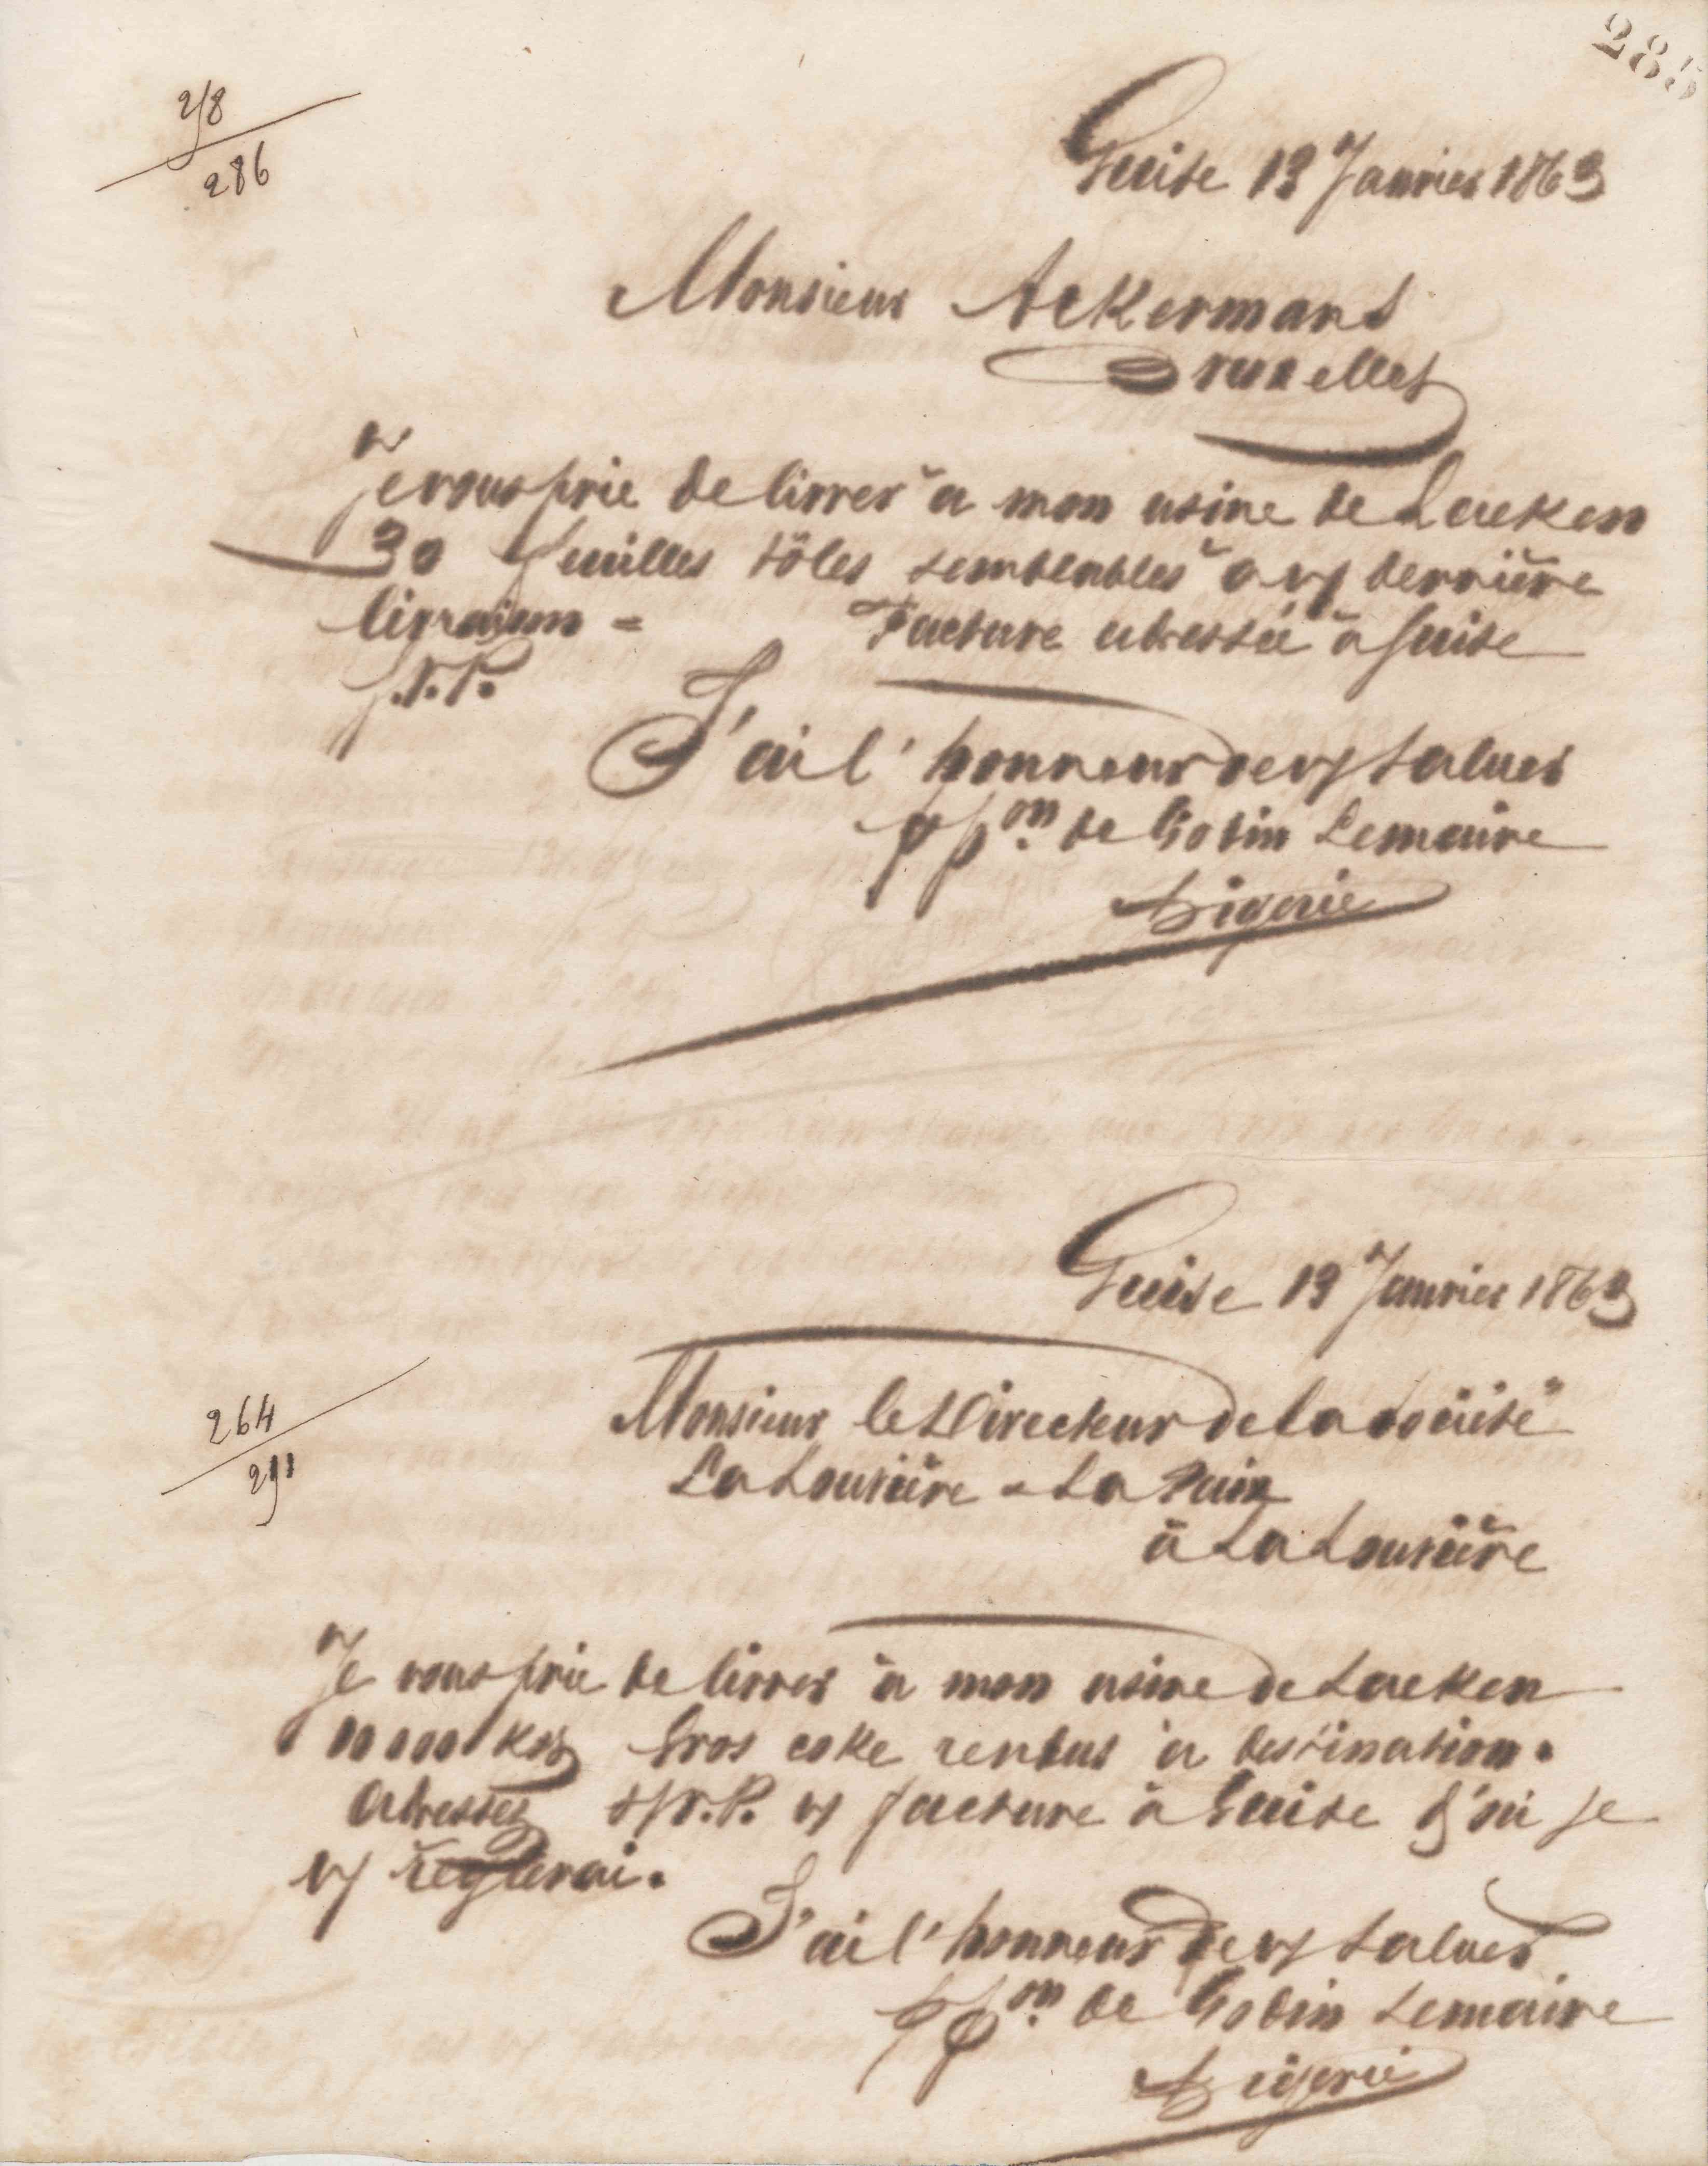 285
218
286
Guise 13 Janvier 1863
Monsieur Ackermans
Bruxelles
Je vous prie de livrer à mon usine de Laeken
30 feuilles tôles semblables à vs dernière
livraison = Facture adressée à Guise
s.v.P.
J'ai l'honneur de vs saluer
pp.on de Godin Lemaire
Guise 13 Janvier 1863
264
291
Monsieur le Directeur de la société
La Louvière & La Paix
à La Louvière
Je vous prie de livrer à mon usine de Laeken
10 000 kos Gros coke rendus à destination.
Adressez s/v.P. vs facture à Guise d'où je
vs règlerai.
J'ai l'honneur de vs saluer
pp.on de Godin Lemaire